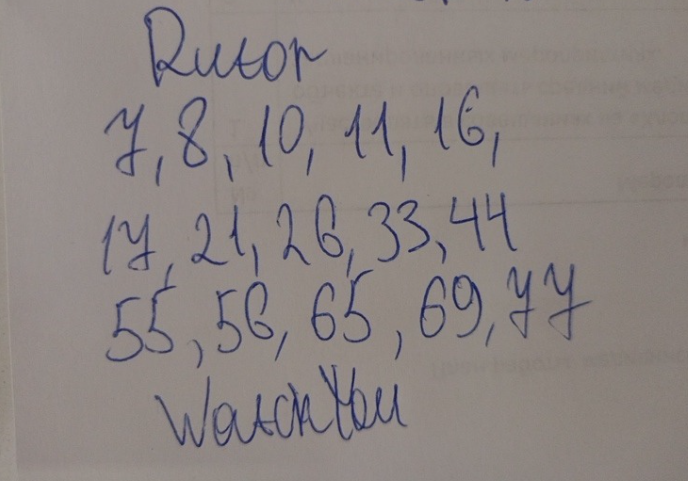 Rutor
7, 8, 10, 11, 16,
17, 21, 26, 33, 44
55, 56, 65, 69, 77
WatchYou